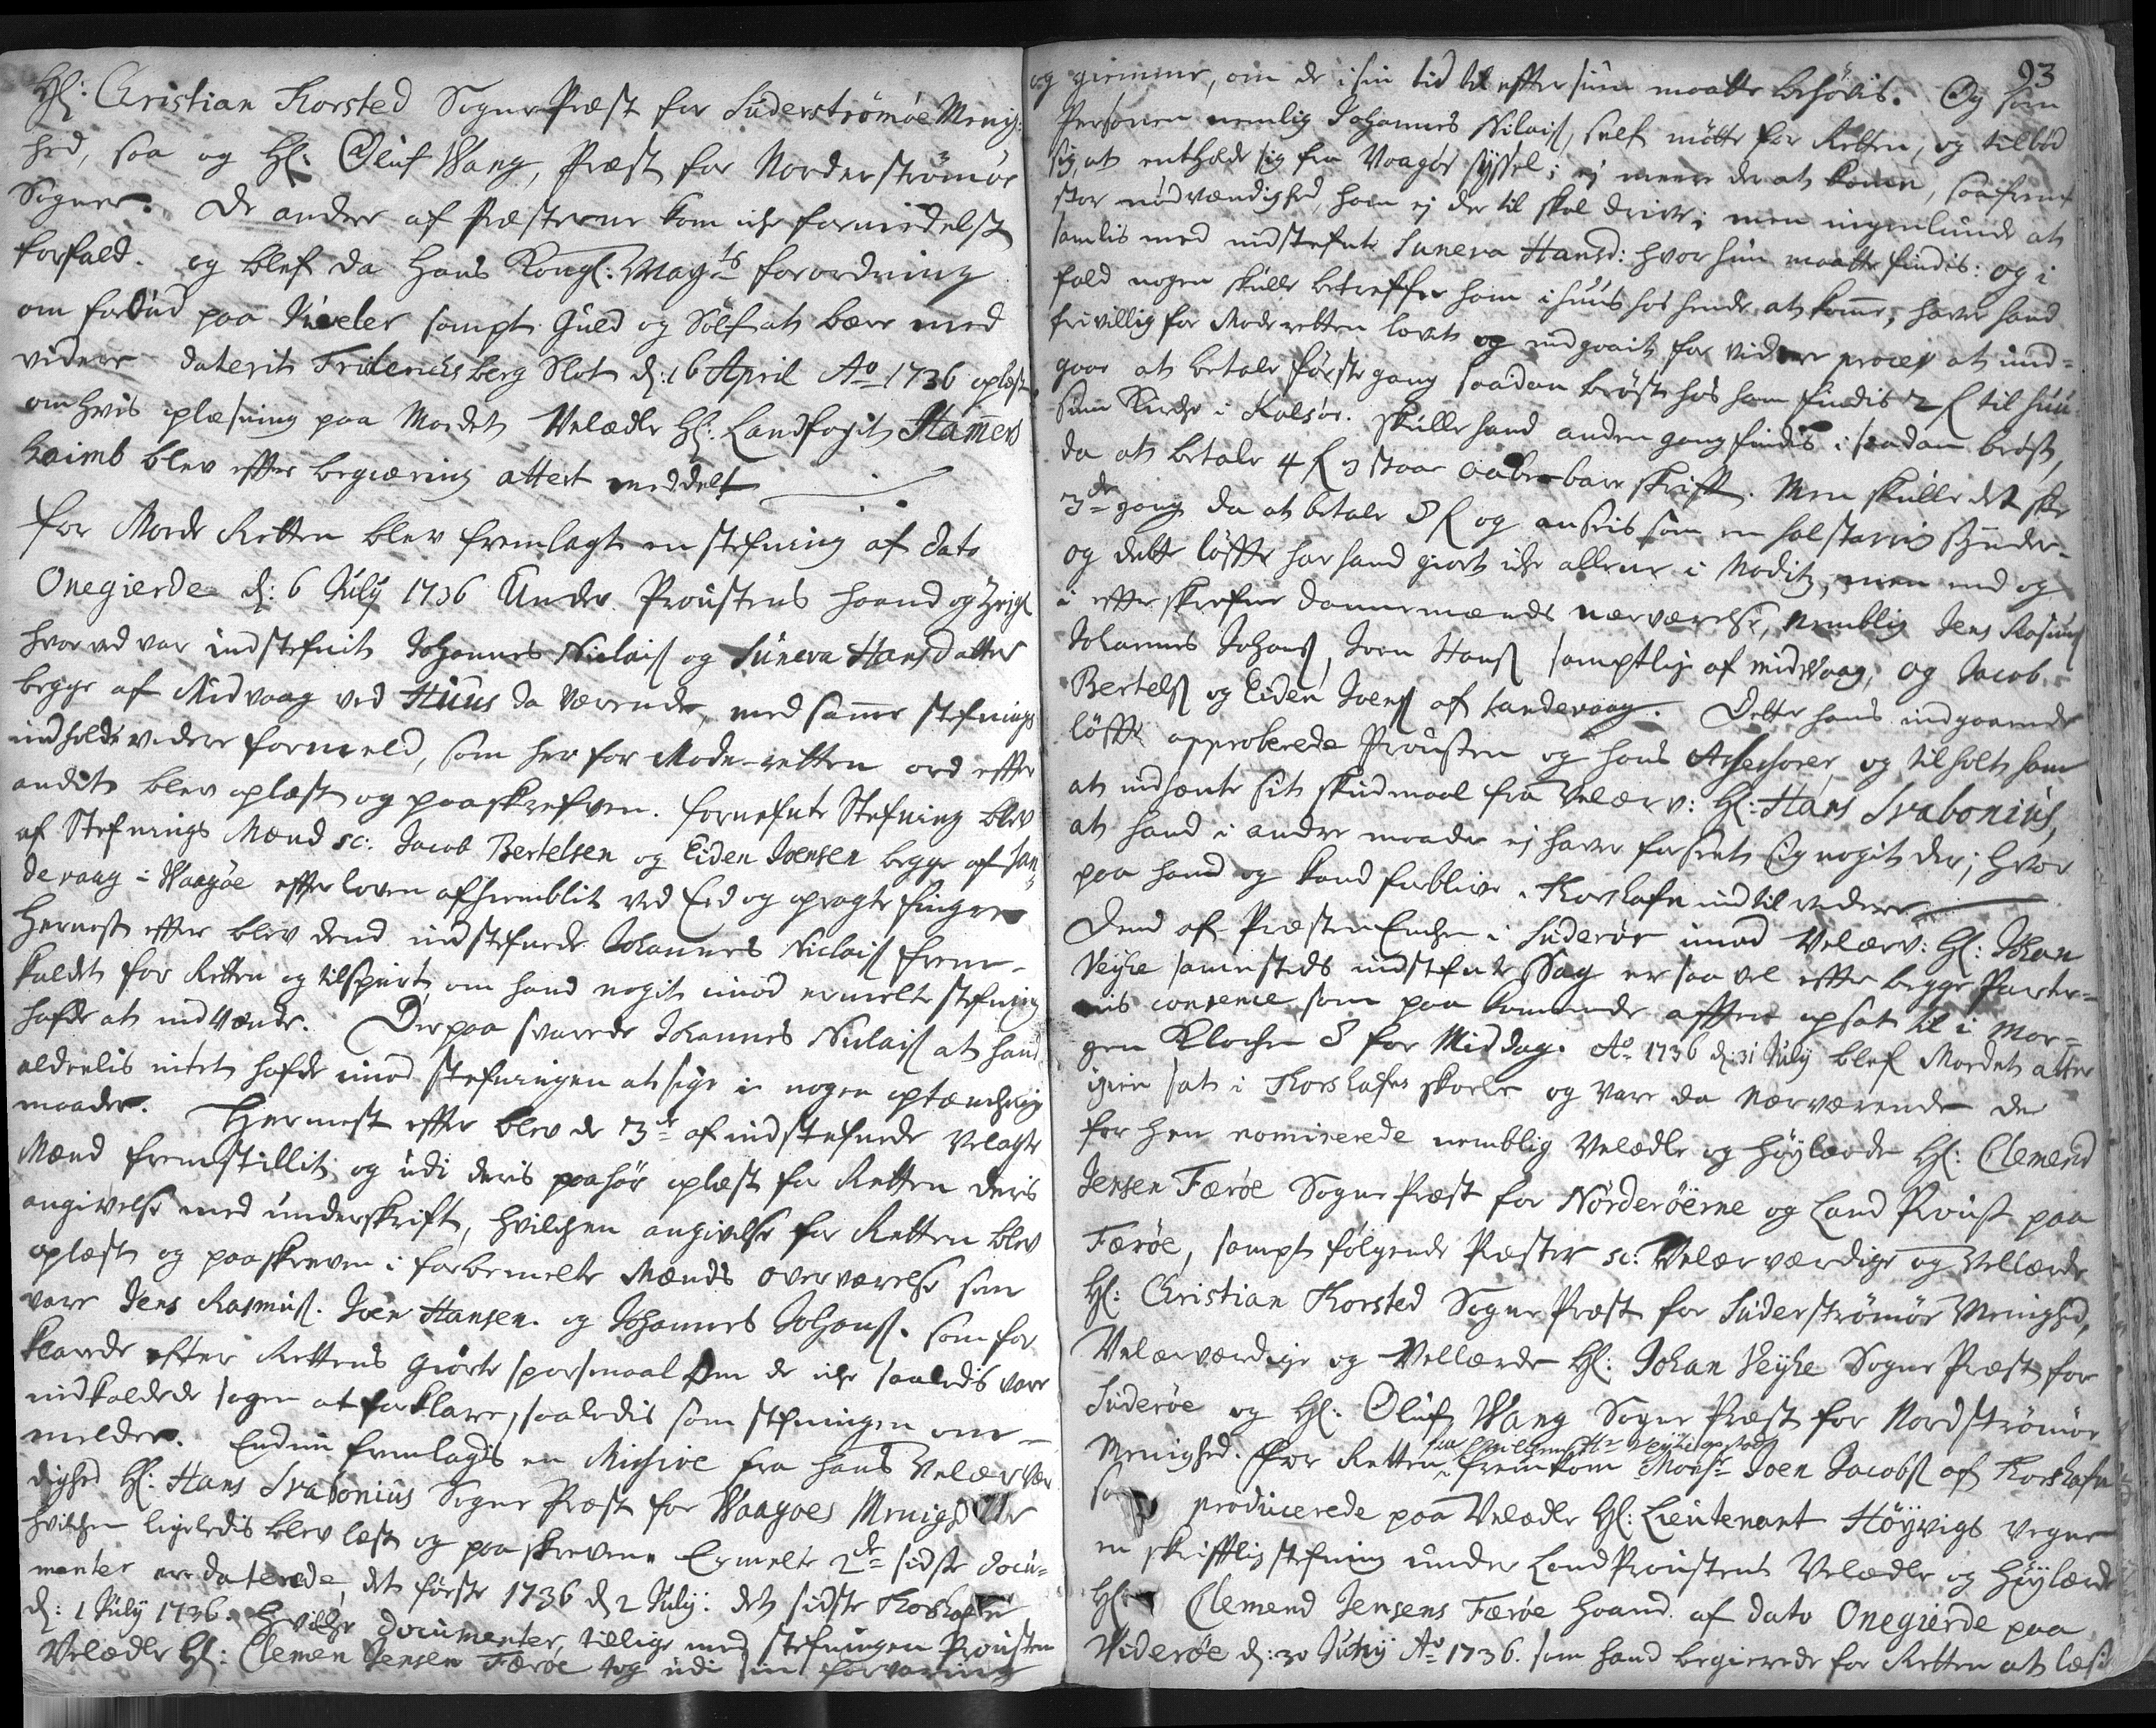 Hl: Christian Korsted Sogne Præst for Süderströmöe Menig:
hed, saa og Hl: Olüf Wang, Præst for Norderströmöe
Sogner. De andre af Præsterne kom iche formedelst
forfald. og blef da Hans Kongl: Mayts forordning
om forbüd paa Jüveler sampt Güld og Sölf at bære med
videre daterit Friderichsberg Slot d: 16 April Ao 1736 oplæst
om hvis oplæsning paa Modet Velædle Hl: Landfogit Hamers
haimb blev effter begiæring attest meddelt
for Mode Retten blev fremlagt en stefning af dato
Onegierde d: 6 Jüly 1736 Under Proustens haand og
hvor ved var indstefnit Johannes Niclaiß og Süneva Hansdatter
begge af Midvaag ved Hüüs da værende, med same stefnings
indhold videre formeld, som her for Mode-retten ord effter
andit blev oplæst og paaskrefven. fornefnte Stefning blev
af Stefnings Mænd sc: Jacob Bertelsen og Eiden Joensen begge af San-
devaag i Waagöe effter loven afhiemblit ved Eed og opragte finger
Hernest effter blev dend indstefnede Johannes Niclaiß frem-
kaldet for Retten og tilspurt, om hand nogit imod ermelte stefning
hafde at indvænde. Derpaa svarede Johannes Niclaiß at hand
aldeelis intet hafde imod stefningen at sige i nogen optænchelig
maader. Hernest effter blev de 3de af indstefnede Velagte
Mænd fremstillit og üdi deris paahör oplæst for Retten deris
angivelse med ünderskrift, hvilchen angivelse for Retten blev
oplæst og paaskreven i forbemelte Mænds overværelse som
vare Jens Rasmüß. Joen Hansen. og Johannes Johanß. som for
klarede effter Rettens giorte sporsmaal Om de iche saaledis vare
indkaldede sagen at forklare, saaledis som stefningen om-
melder. Endnü fremlagdes en Missive fra hans Velærvær
dighed Hl: Hans Svabonius Sogne Præst for Waagöes Menighed
hvilchen ligeledis blev læst og paaskreven. Ermelte 2de sidste docü-
menter ere daterede, det förste 1736 d 2 Jüly: det sidste Korshafn
d: 1 Jüly 1736. Hvilche documenter, tillige med stefningen Prousten
Velædle Hl: Clemen Jensen Færöe tog üdi sin forvaring
93
og giemme, om de i sin tid til effter siün maatte behövis. Og som
Personen nemlig Johannes Nilaiß, self mötte for Retten, og tilböd
sig, at entholde sig fra Vaagöe syssel; ej meere der at komme, saafremt
stor nödvændighed, ham ej der til skal drive; men ingenlunde at
samlis med indstefnte Suneva Hansd: hvor hün maatte findis: og i
fald nogen skulle betreffe ham i hüüs hos hende at kome, haver hand
frivillig for Mode retten lovet og indgaait for videre proces at und-
gaae at betale förste gang saadan bröst hos ham findis 2 ʃ til hüü-
süm Kirche i Kalsöe. Skülle hand anden gang findis i saadan bröst,
da at betale 4 ʃ og staae aabenbare skrift. Men skülle det skee
3de gang da at betale 8 ʃ og ansees som en halstarrig Synder.
og dette löffte har hand giort iche alleene i Modit, men end og
i effterskrefne dannemænds nærværelse, nemblig Jens Rasmuß
Johannes Johanß, Joen Hanß samptlig af midvaag, og Jacob
Bertelß og Eiden Joenß af Sandevaag. Dette hans indgaaende
löffte approberede Prousten og hans Assessorer, og tilholt ham
at indhente sit skudmaal fra Velærv: Hl: Hans Svabonius,
at hand i andre maader ej haver forseet sig nogit der; hvor
paa hand og kand forblive i Korshafn indtil videre
Dend af Præste Enchen i Süderöe imod Velærv: Hl: Johan
Weyhe samesteds indstefnte Sag er saa vel effter begge Parter-
nis consence som paa kommende afften opsat til i Mor-
gen Klochen 8 for Middag. Ao 1736 d: 31 Jüly blef Modet atter
igien sat i Korshafns skoele og vare da nærværende de
for hen nominerede nemblig Velædle og Höylærde Hl: Clemend
Jensen Færöe Sogne Præst for Norderöerne og Land Proust paa
Færöe, sampt følgende Præster sc: Velærværdige og Vellærde
Hl: Christian Korsted Sogne Præst for Süderströmöe Menighed,
Velærværdige og Vellærde Hl: Johan Weyhe Sogne Præst for
Süderöe og Hl. Olüf Wang Sogne Præst for Nordströmöe
Menighed. for Retten fremkom Monsr Joen Jacobß af Korshafn
producerede paa Velædle Hl: Lieutenant Höyvigs vegne
en skrifftlig stefning ünder Land Proustens Velædle og Höylærde
Hl: Clemend Jensens Færöe haand. af dato Onegierde paa
Videröe d: 30 Ao 1736. som hand begierede for Retten at læse